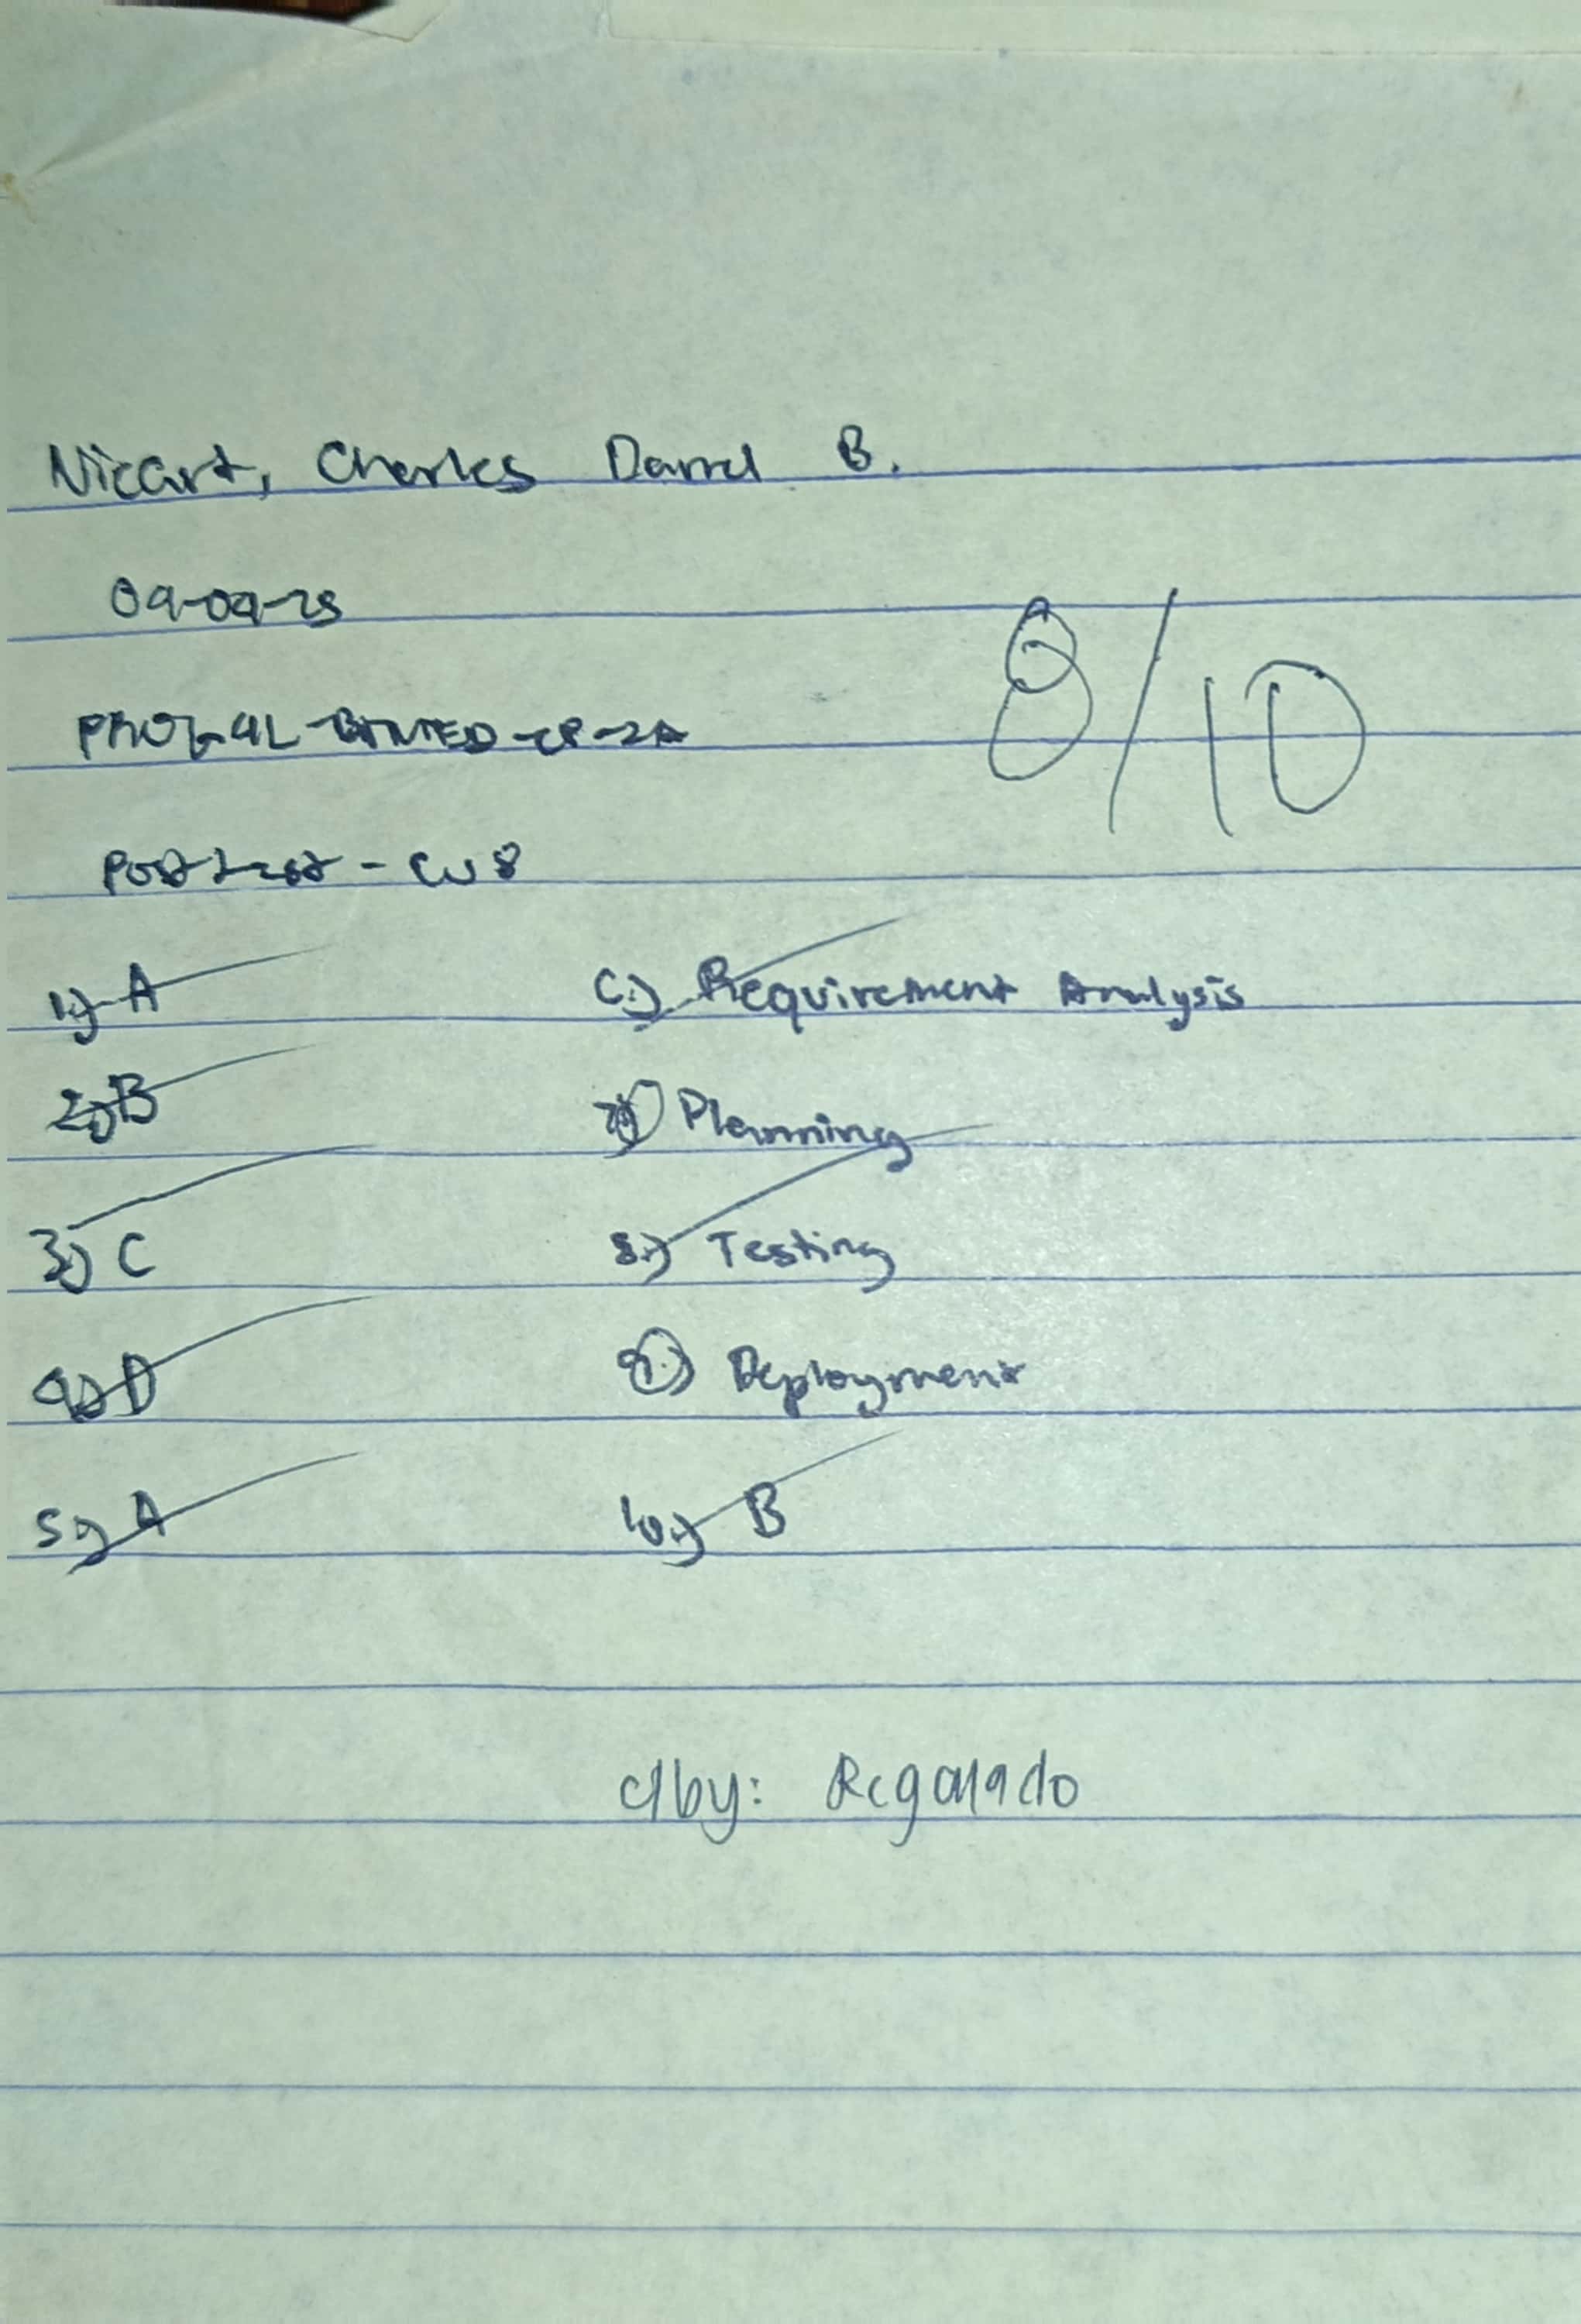 Nicart, Charles Darrel B.
09-09-25
8/10
Post test - CU8
1.) A
2.) B
3.) C
4.) D
5.) A
6.) Requirement Analysis
7.) Planning
8.) Testing
9.) Deployment
10.) B
c/by: Regalado